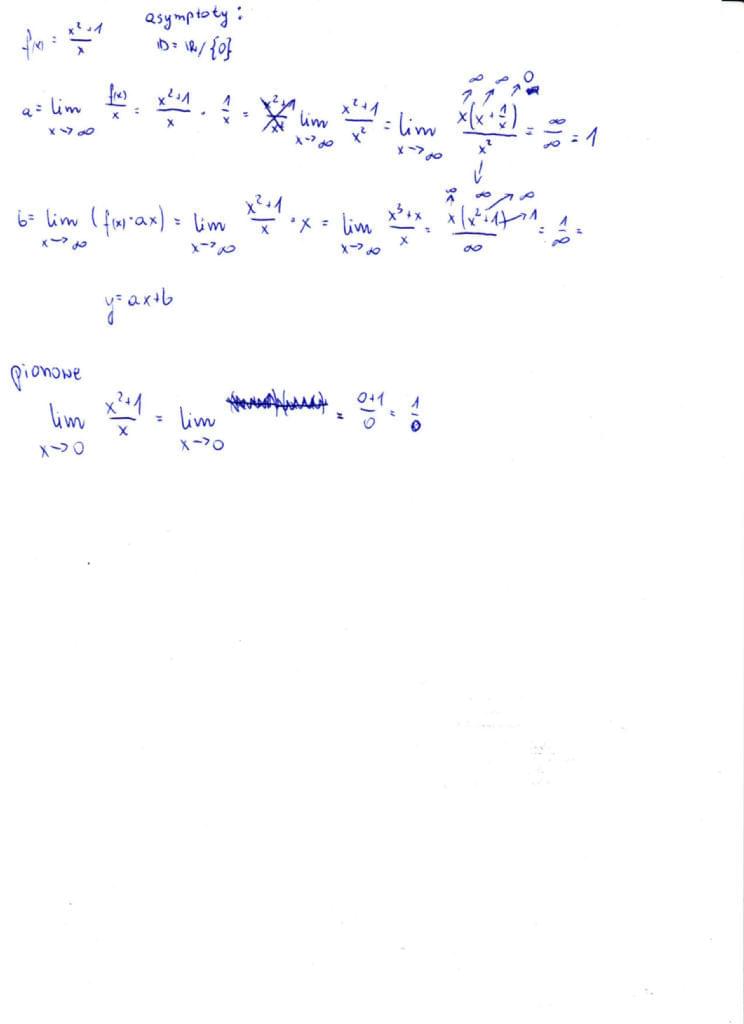 f(x) = (x²+1)/x asymptoty:
D = R/{0}
a = lim x→∞ f(x)/x = (x²+1)/x · 1/x = lim x→∞ (x²+1)/x² = lim x→∞ x(x+1/x)/x² = ∞/∞ = 1
b = lim x→∞ (f(x)·ax) = lim x→∞ (x²+1)/x · x = lim x→∞ (x³+x)/x = x(x²+1)/∞ = 1/∞ =
y = ax+b
pionowe
lim x→0 (x²+1)/x = lim x→0 = (0+1)/0 = 1/0